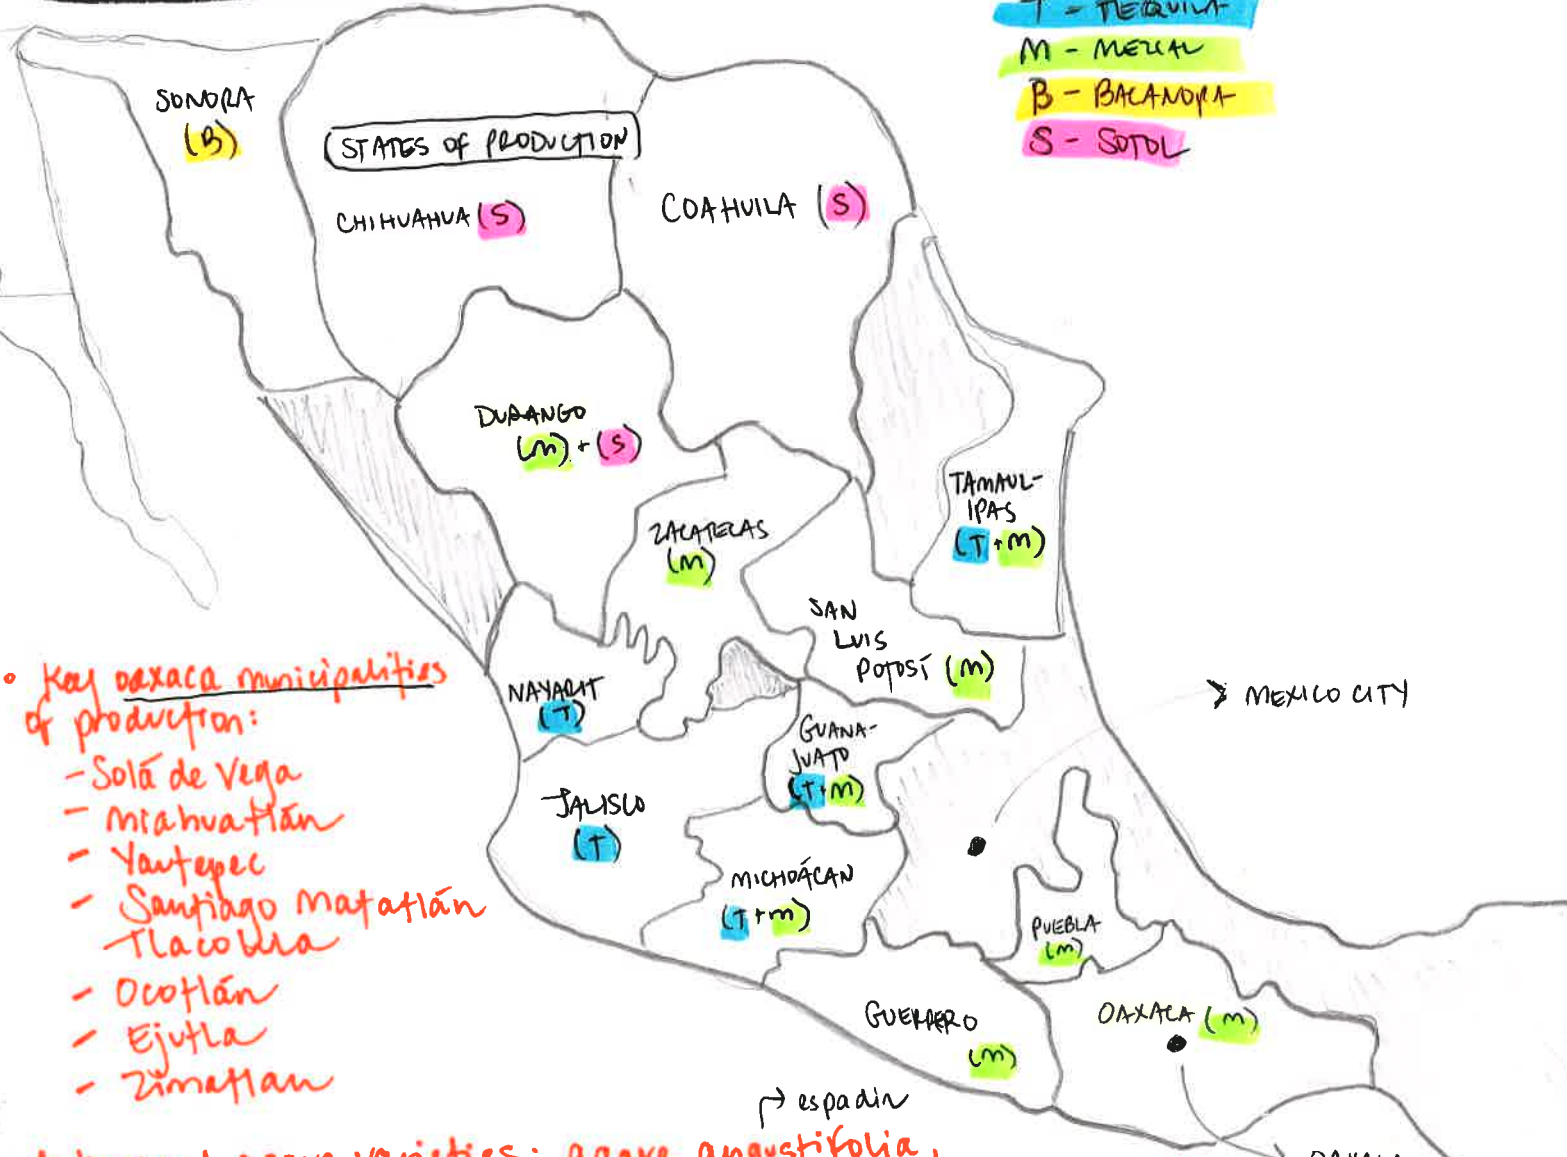 T - TEQUILA
M - MEZCAL
B - BACANORA
S - SOTOL
SONORA
(B)
STATES OF PRODUCTION
CHIHUAHUA (S)
COAHUILA (S)
DURANGO
(M) + (S)
ZACATECAS
(M)
TAMAUL-
IPAS
(T + M)
SAN
LUIS
POTOSÍ (M)
NAYARIT
(T)
GUANA-
JUATO
(T + M)
JALISCO
(T)
MICHOÁCAN
(T + M)
MEXICO CITY
PUEBLA
(M)
GUERRERO
(M)
OAXACA (M)
• Key oaxaca municipalities
of production:
- Solá de Vega
- Miahuatlán
- Yautepec
- Santiago Matatlán
- Tlacolula
- Ocotlán
- Ejutla
- Zimatlan
espadin
agave varieties: agave angustifolia,
OAXACA